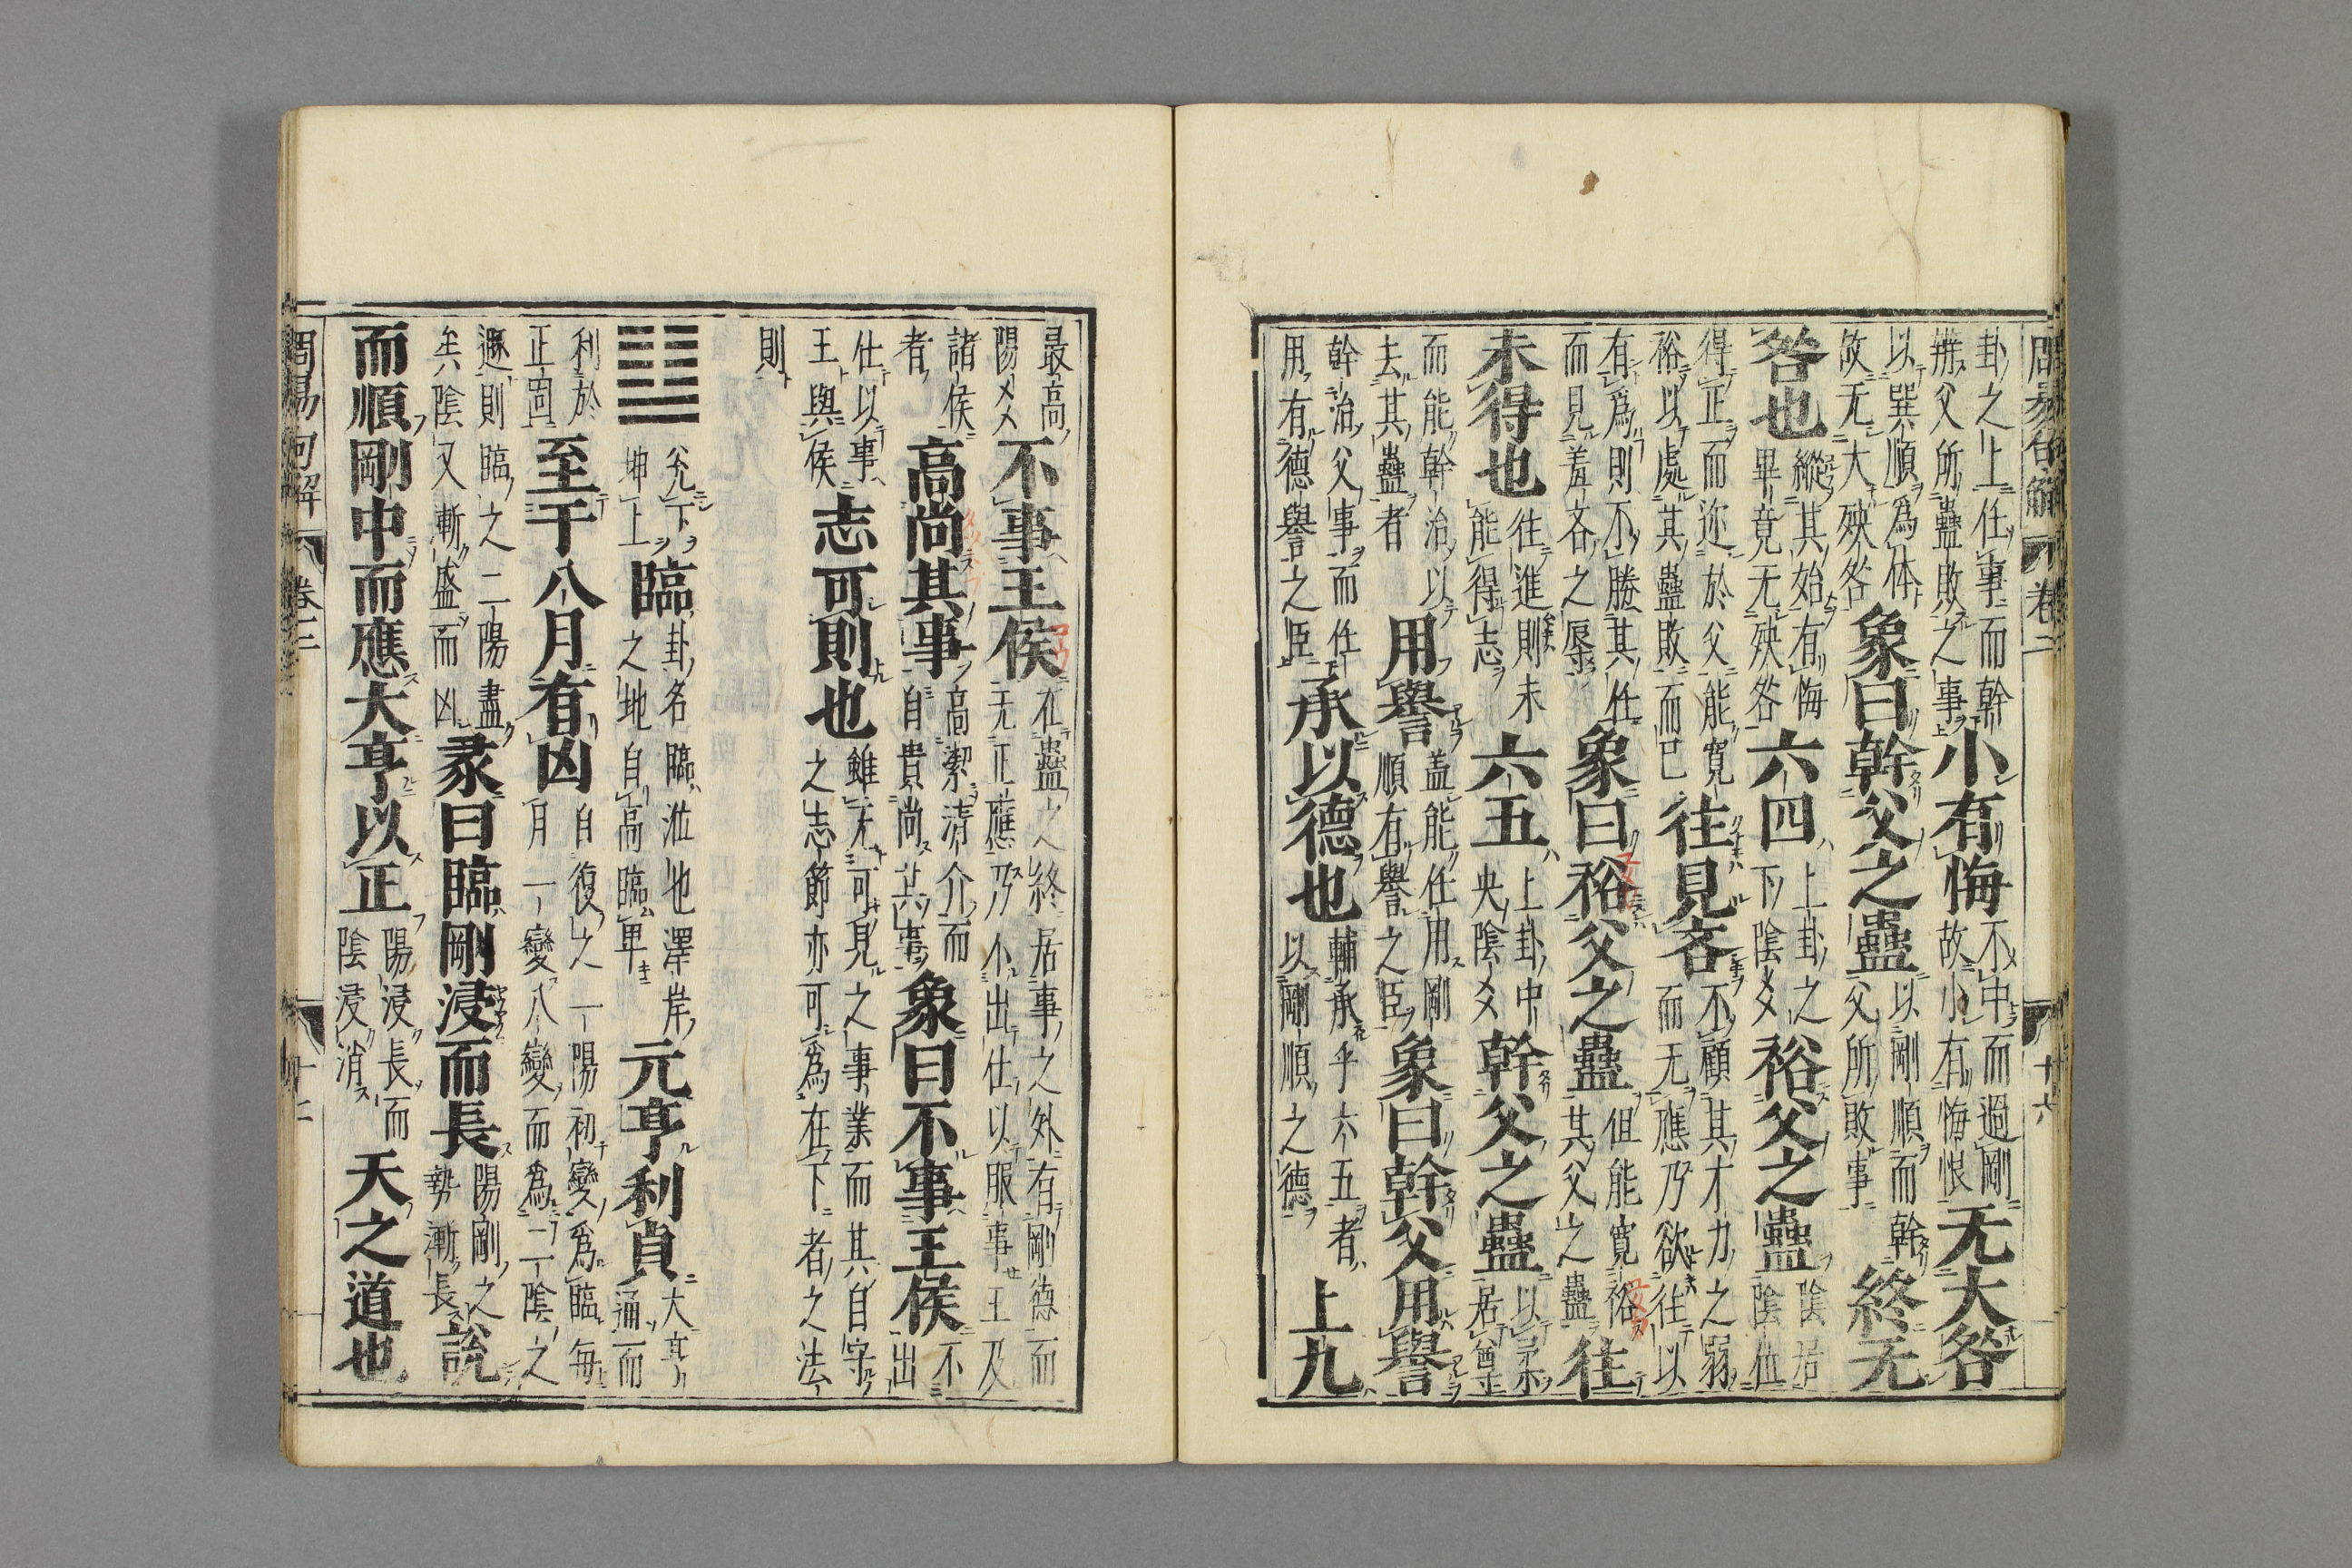 周易句解 卷二 十六
卦之上任事而幹辨父所蠱敗之事小有悔不中而過剛故小有悔恨无大咎
以巽順爲体故无大殃咎象曰幹父之蠱以剛順而幹父所敗事終无
咎也縱其始有悔畢竟无殃咎六四上卦之下陰爻裕父之蠱陰居陰位
得正而迩於父能寛裕以處其蠱敗而已往見吝不顧其才力之弱而无應乃欲往以
有爲則不勝其任而見羞吝之辱象曰裕父之蠱但能寛裕其父之蠱往
未得也往進則未能得志六五上卦中央陰爻幹父之蠱以柔居尊
而能幹治以去其蠱者用譽盖能任用剛順有譽之臣象曰幹父用譽
幹治父事而任用有德譽之臣承以德也輔承乎六五者以剛順之德上九
最高陽爻不事王侯在蠱之終居事之外有剛德而无正應乃不出仕以服事王及
諸侯者高尚其事高潔清介而自貴尚其事象曰不事王侯不出
仕以事王與侯志可則也雖无可見之事業而其自守之志節亦可爲在下者之法
則
䷒兊下坤上臨卦名臨涖也澤岸之地自高臨卑元亨利貞大亨通而
利於正固至于八月有凶自復之一陽初變爲臨每月一變八變而爲二陰之
遯則臨之二陽盡矣陰又漸盛而凶彖曰臨剛浸而長陽剛之勢漸長說
而順剛中而應大亨以正陽浸長而陰浸消天之道也
周易句解 卷二